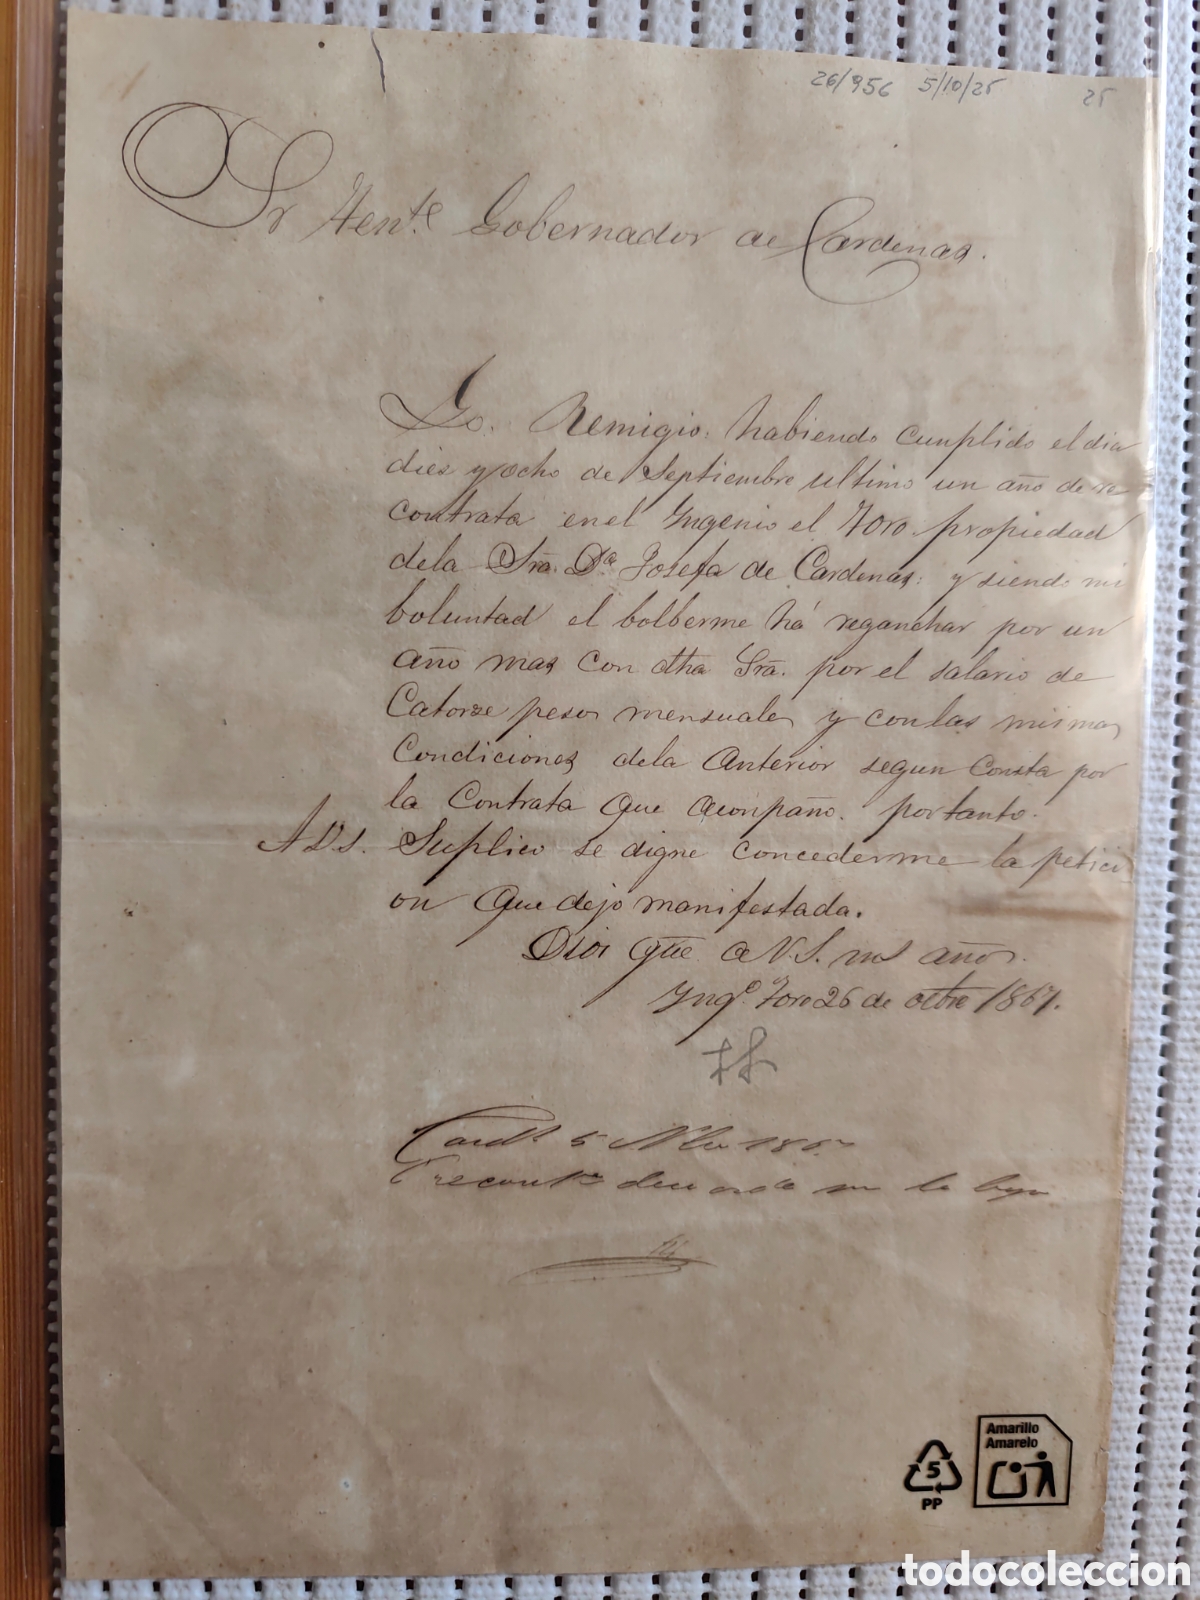 26/956 5/10/25 25
Sr Tente. Gobernador de Cardenas.
Yo. Remigio, habiendo cunplido el dia
diez y ocho de Septiembre ultimo un año de re
contrata en el Yngenio el Toro. propiedad
dela Sra. Da. Josefa de Cardenas: y siendo mi
boluntad el bolberme há reganchar por un
año mas con dha Sra. por el salario de
Catorze pesos mensuales y conlas mismas
Condiciones dela Anterior segun Consta por
la Contrata que aconpaño. portanto.
A V.S. Suplico se digne concederme la petici
on que dejo manifestada.
Dios gue a V.S. ms años.
Yngo. Toro 26 de octbre 1867.
5 1867
la
Amarillo
Amarelo
5
PP
todocoleccion